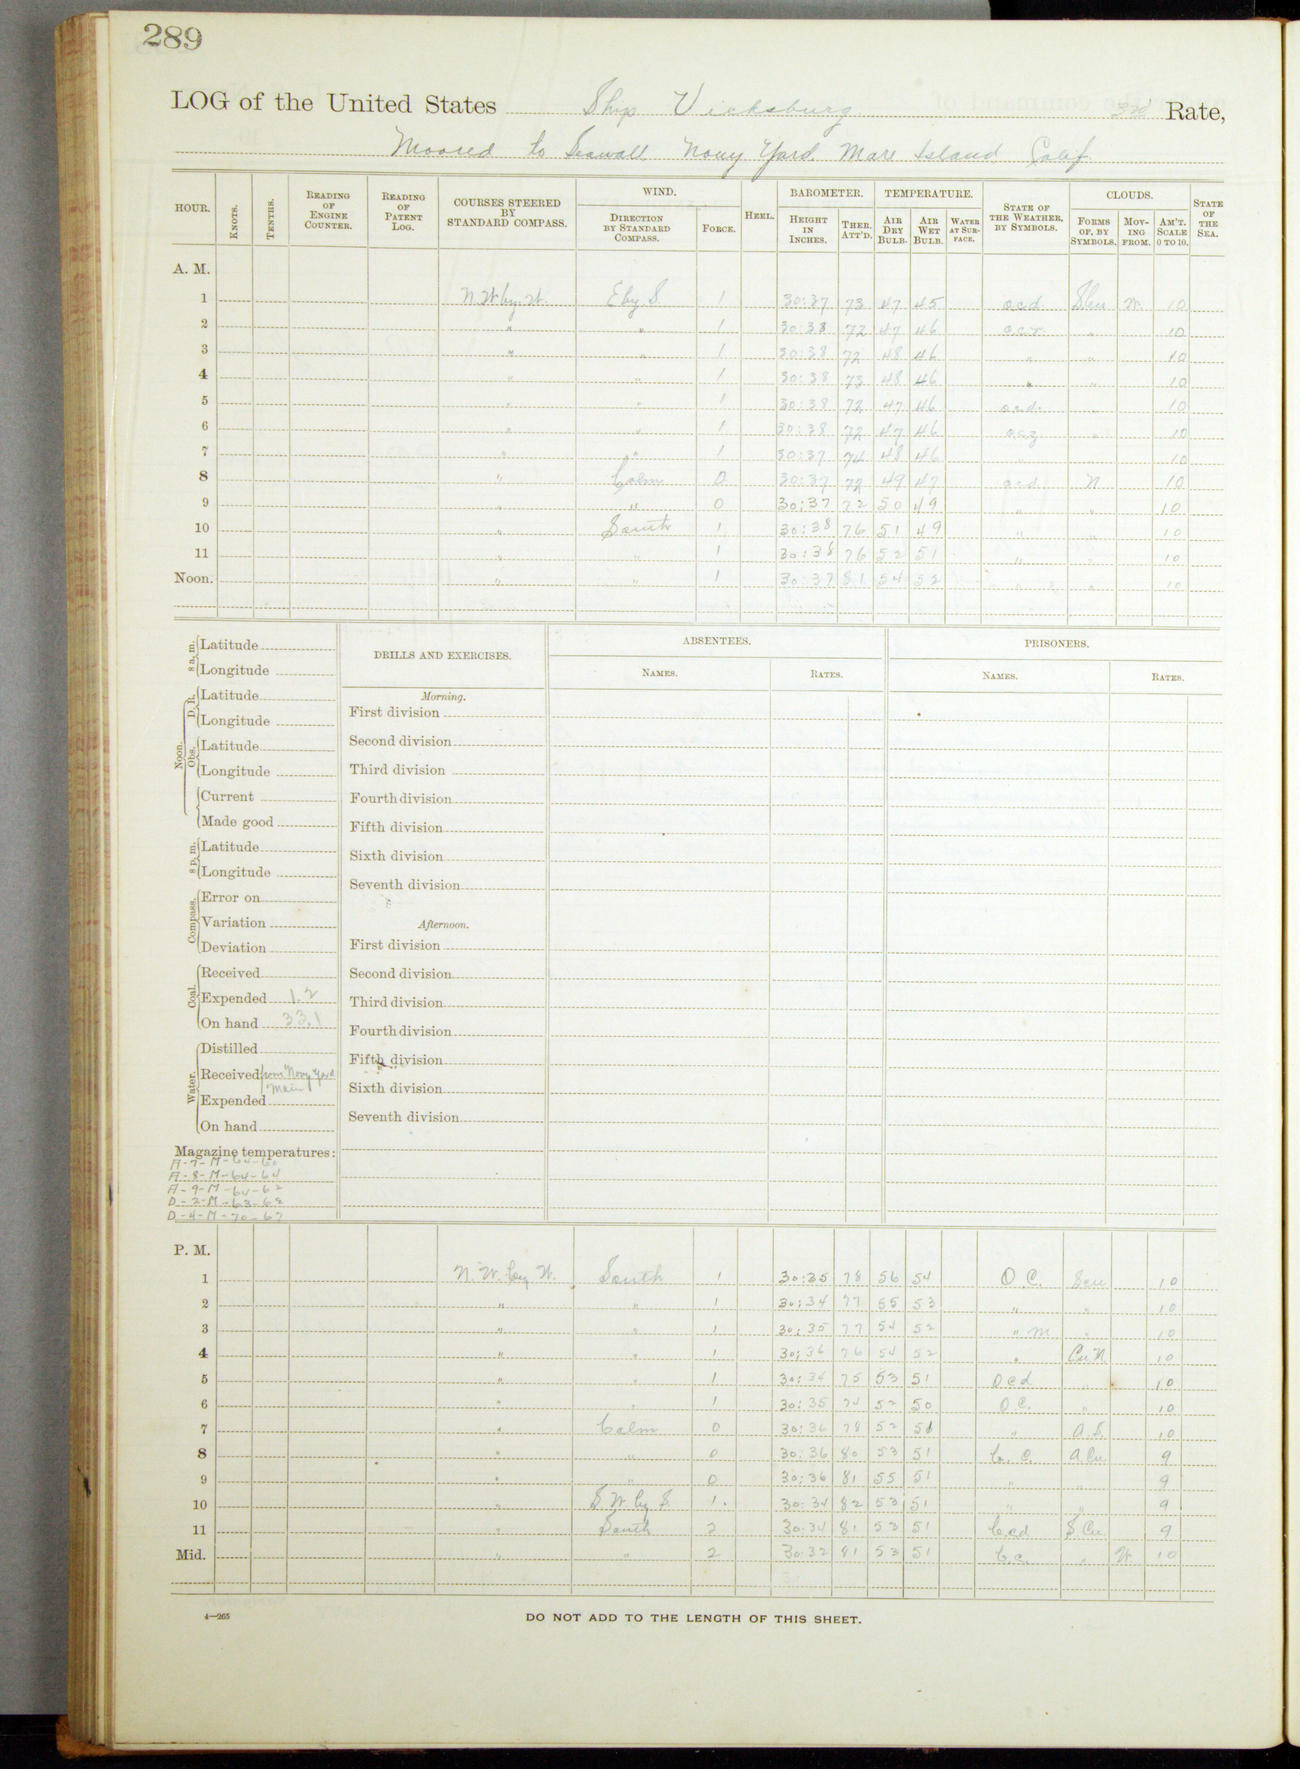 289
LOG of the United States Ship Vicksburg 3rd Rate,
Moored to Seawall Navy Yard Mare Island Calif.
HOUR. KNOTS. TENTHS. READING OF ENGINE COUNTER. READING OF PATENT LOG. COURSES STEERED BY STANDARD COMPASS. WIND. DIRECTION BY STANDARD COMPASS. FORCE. HEEL. BAROMETER. HEIGHT IN INCHES. THER. ATT'D. TEMPERATURE. AIR DRY BULB. AIR WET BULB. WATER AT SURFACE. STATE OF THE WEATHER, BY SYMBOLS. CLOUDS. FORMS OF, BY SYMBOLS. MOVING FROM. AM'T. SCALE 0 TO 10. STATE OF THE SEA.
A. M.
1 N.W. by W. E by S. 1 30:37 73 47 45 o.c.d. W. 10
2 " " 1 30:38 72 47 46 o.c.r. " 10
3 " " 1 30:38 72 48 46 " " 10
4 " " 1 30:38 73 48 46 " " 10
5 " " 1 30:38 72 47 46 o.c.d. 10
6 " " 1 30:38 72 47 46 o.c.z " 10
7 " " 1 30:37 74 48 46 " " 10
8 " Calm 0 30:37 72 49 47 o.c.d. N 10
9 " " 0 30:37 72 50 49 " " 10
10 " South 1 30:38 76 51 49 " " 10
11 " " 1 30:38 76 52 51 " " 10
Noon. " " 1 30:37 81 54 52 " " 10
8 a. m. Latitude
Longitude
Noon. D. R. Latitude
Longitude
Obs. Latitude
Longitude
Current
Made good
8 p. m. Latitude
Longitude
Compass. Error on
Variation
Deviation
Coal. Received
Expended 1.2
On hand 33.1
Water. Distilled
Received from Navy Yard Main
Expended
On hand
Magazine temperatures:
A-7-M-64-60
A-8-M-64-64
A-9-M-64-62
D-2-M-63-62
D-4-M-70-67
DRILLS AND EXERCISES.
Morning.
First division
Second division
Third division
Fourth division
Fifth division
Sixth division
Seventh division
Afternoon.
First division
Second division
Third division
Fourth division
Fifth division
Sixth division
Seventh division
ABSENTEES.
NAMES. RATES.
PRISONERS.
NAMES. RATES.
P. M.
1 N. W. by W. South 1 30:35 78 56 54 O.C. Scu 10
2 " " 1 30:34 77 55 53 " " 10
3 " " 1 30:35 77 54 52 " m. " 10
4 " " 1 30:36 76 54 52 " Cu N 10
5 " " 1 30:34 75 53 51 O c d " 10
6 " " 1 30:35 74 52 50 O.C. " 10
7 " Calm 0 30:36 78 52 51 " A.S. 10
8 " " 0 30:36 80 53 51 b. c. A Cu 9
9 " " 0 30:36 81 55 51 " " 9
10 " S W by S. 1. 30:34 82 53 51 " " 9
11 " South 2 30:34 81 53 51 b.cd S Cu. 9
Mid. " " 2 30:32 81 53 51 b.c. " W. 10
4—265
DO NOT ADD TO THE LENGTH OF THIS SHEET.